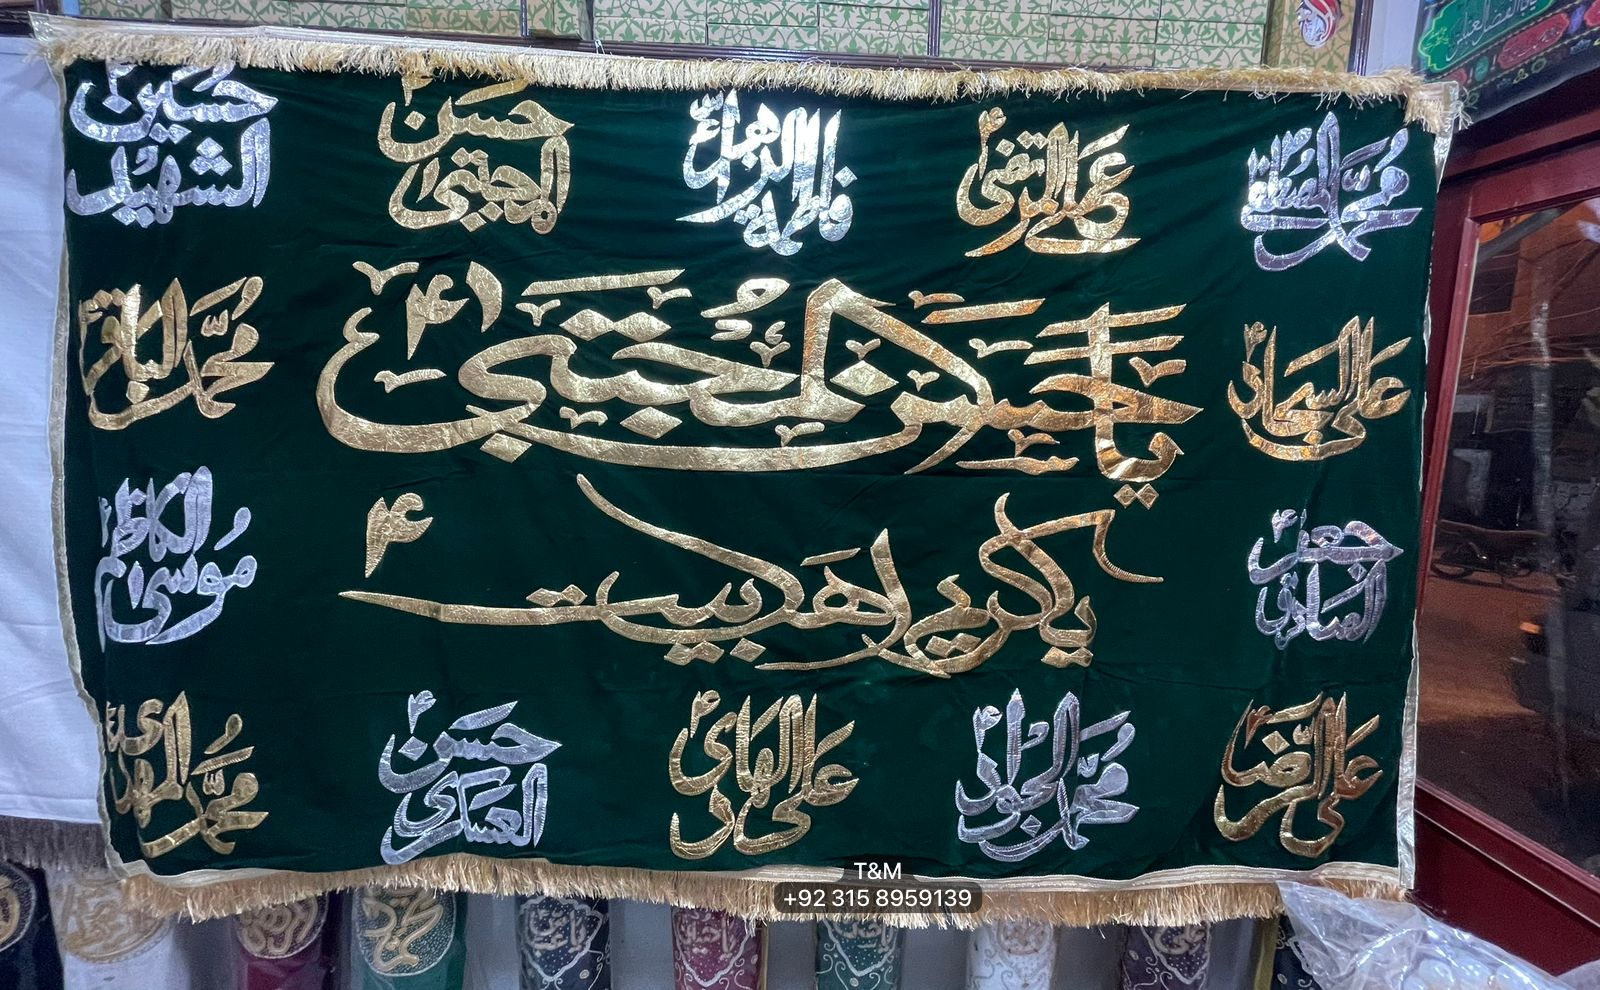 محمد المصطفیٰ
علی المرتضیٰ
فاطمة الزهراء
حسن المجتبیٰ
حسین الشهید
علی السجاد
یا حسن المجتبیٰ
محمد الباقر
جعفر الصادق
یا کریم اهلبیت
موسی الکاظم
علی الرضا
محمد الجواد
علی الهادی
حسن العسکری
محمد المهدی
T&M
+92 315 8959139